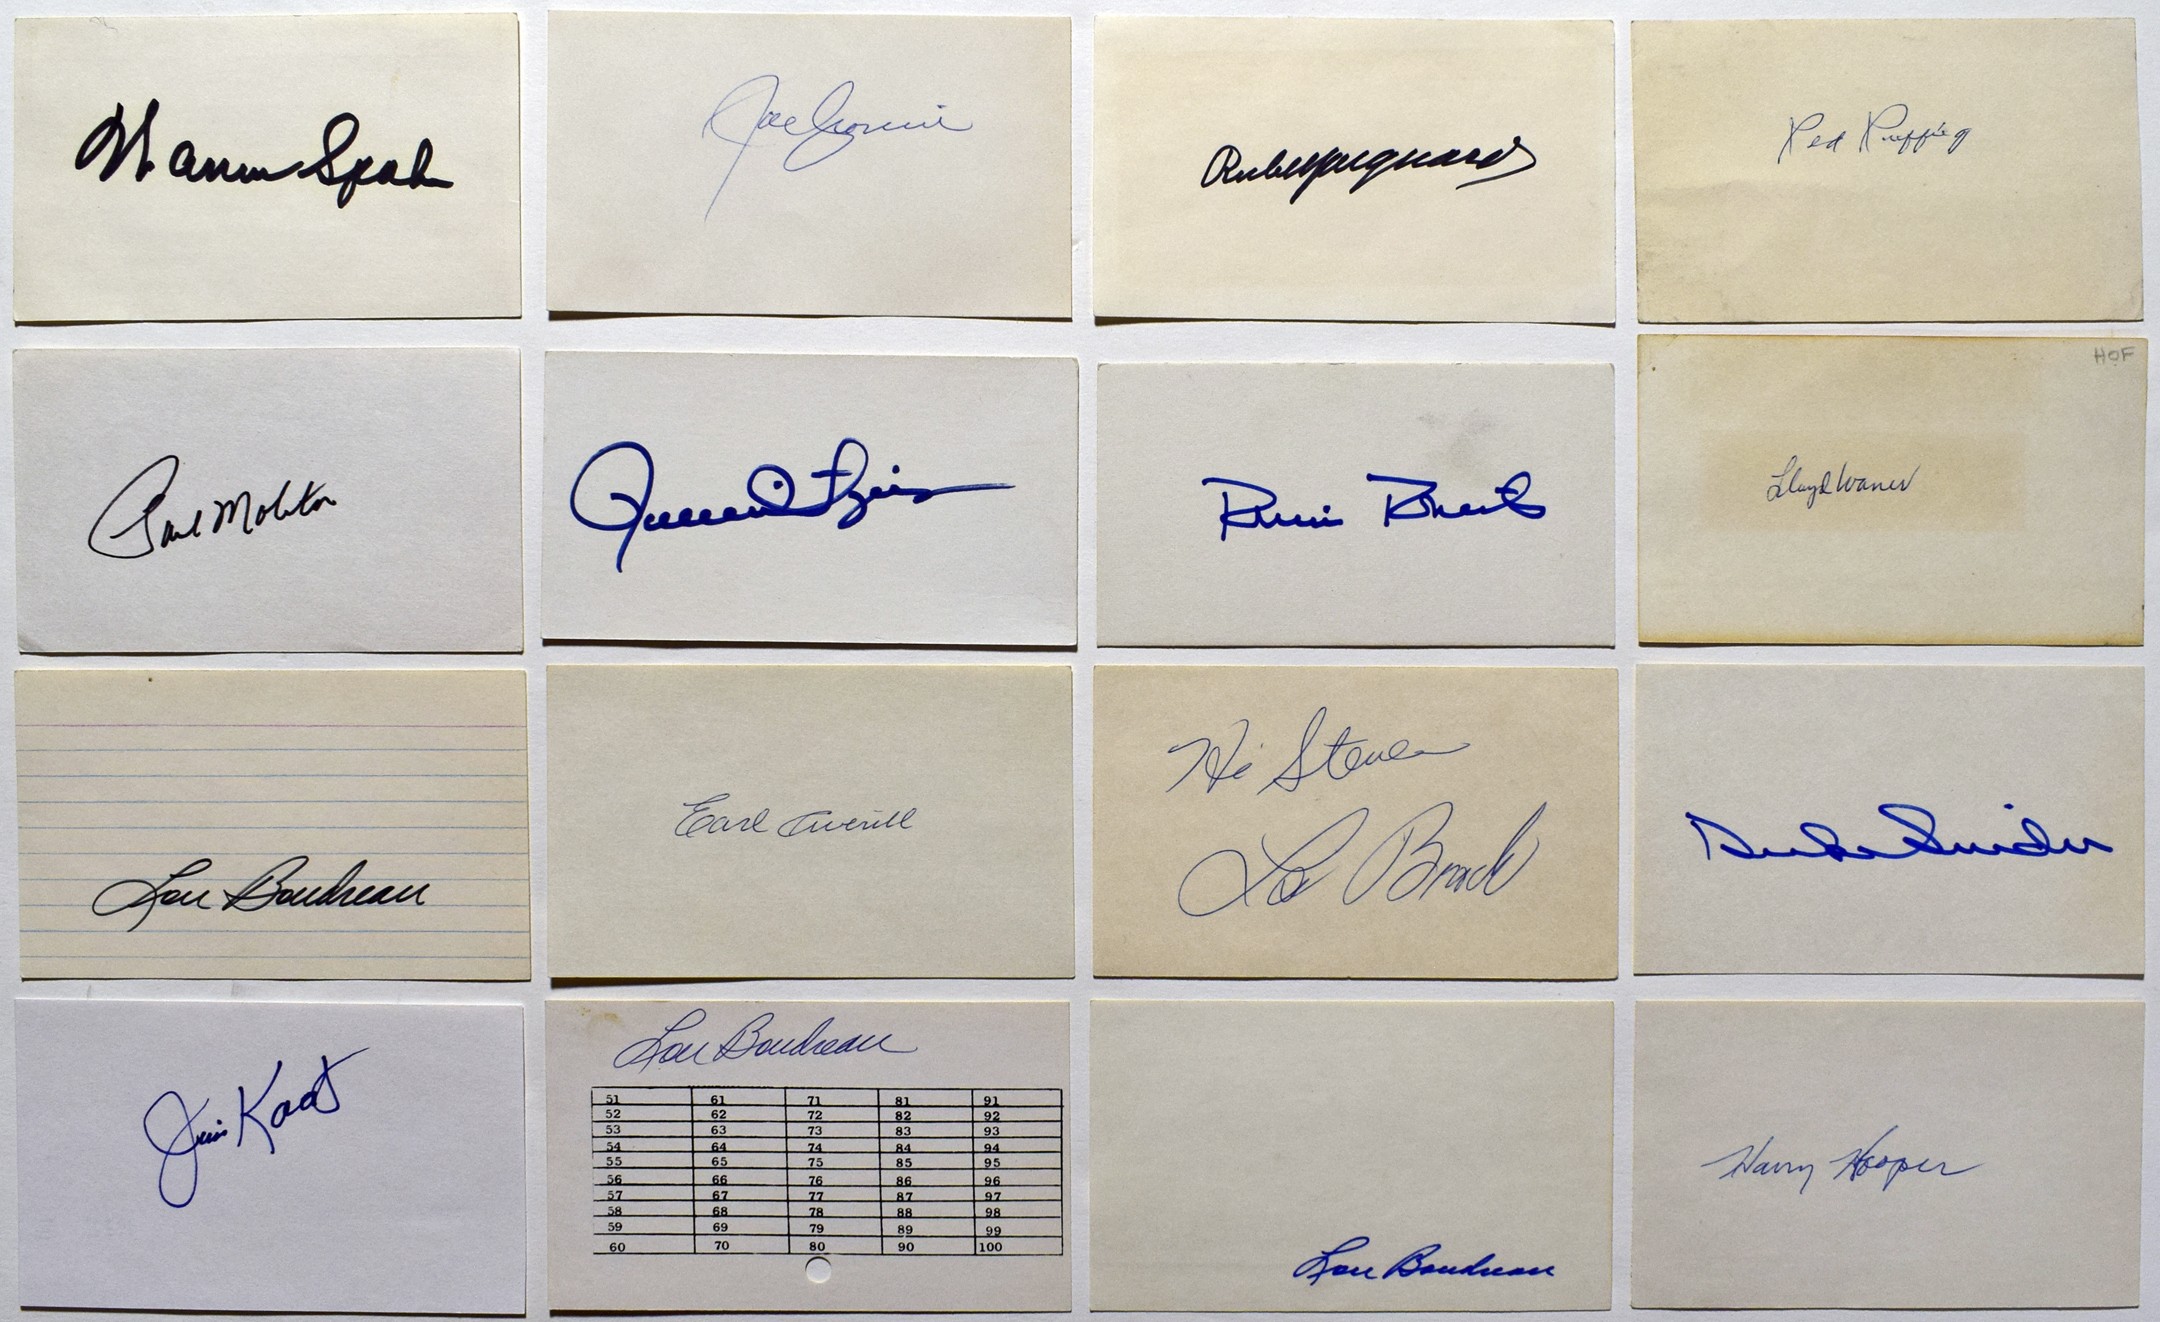 Warren Spahn
Joe Cronin
Rube Marquard
Red Ruffing
Paul Molitor
Robin Roberts
HOF
Lloyd Waner
Lou Boudreau
Earl Averill
Hi Steven
Lou Brock
Duke Snider
Jim Kaat
Lou Boudreau
51 61 71 81 91
52 62 72 82 92
53 63 73 83 93
54 64 74 84 94
55 65 75 85 95
56 66 76 86 96
57 67 77 87 97
58 68 78 88 98
59 69 79 89 99
60 70 80 90 100
Lou Boudreau
Harry Hooper